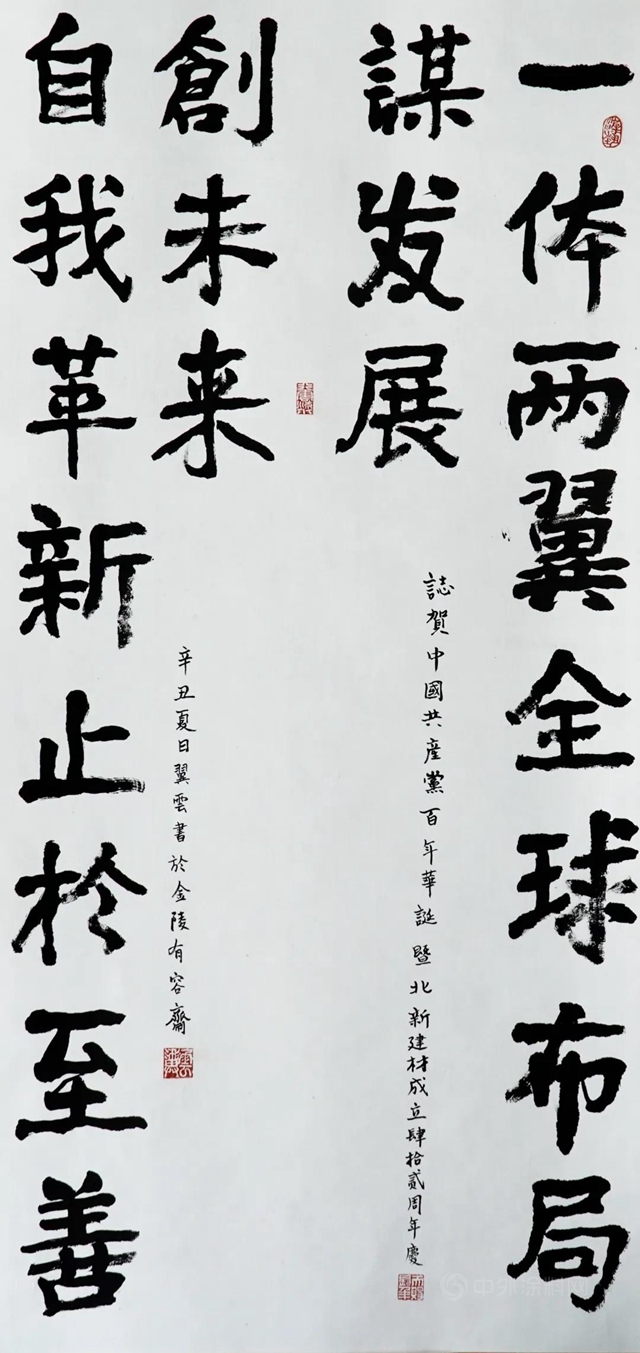 一体两翼全球布局
謀发展
誌賀中國共產黨百年華誕暨北新建材成立肆拾貳周年慶
自我革新止於至善
創未来
辛丑夏日翼雲書於金陵有容齋
中外涂料网